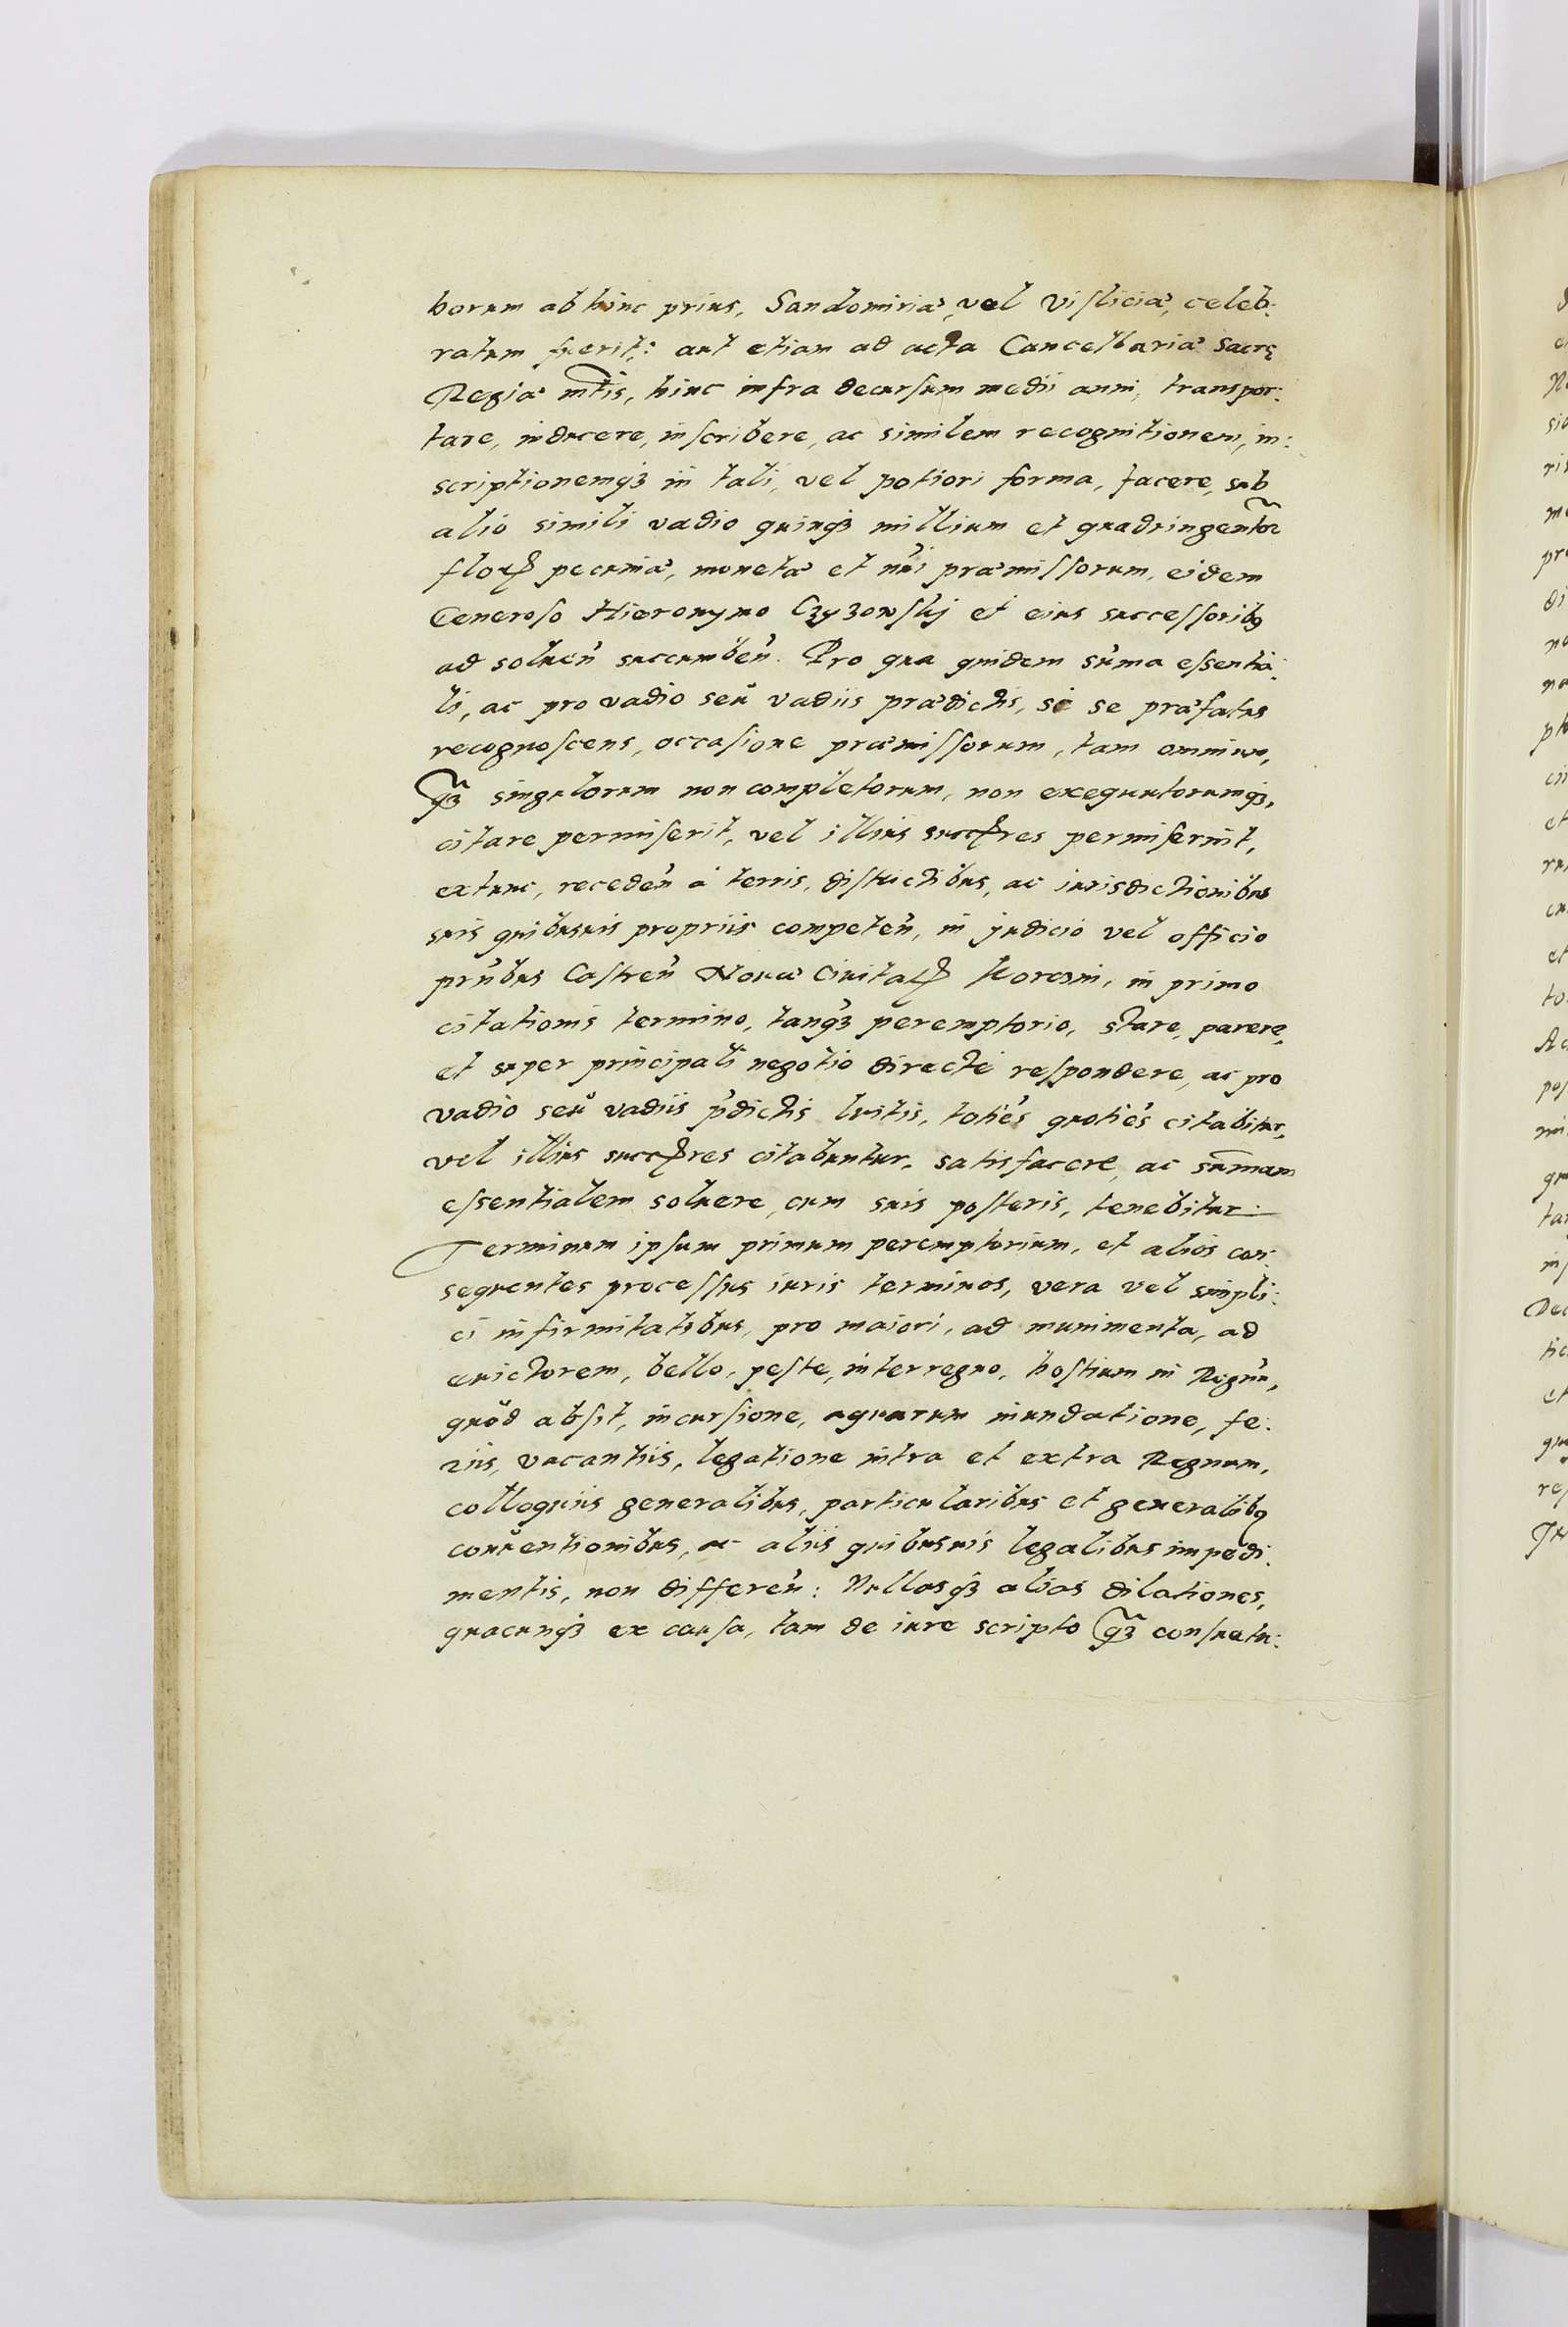 borum ab hinc prius, Sandomiriæ, vel Visliciæ, celeb:
ratum fuerit: aut etiam ad acta Cancellariæ Sacrę
Regiæ mtis, hinc infra decursum medii anni, transpor:
tare, inducere, inscribere, ac similem recognitionem, in:
scriptionemqʒ in tali, vel potiori forma, facere, sub
alio simili vadio quinqʒ millium et quadringentor̃
flor pecuniæ, monetæ et nůi præmissorum, eidem
Generoso Hieronymo Czyzowskj et eius successoribꝰ
ad soluen̄ succumben̄. Pro qua quidem sum̄a essentia:
li, ac pro vadio seu vadiis prædictis, si se præfatus
recognoscens, occasione præmissorum, tam omnium,
q̃ʒ singulorum non completorum, non exequutorumqʒ,
citare permiserit, vel illius succres permiserint,
extunc, receden̄ à terris, districtibus, ac iurisdictionibus
suis quibusuis propriis competen̄, in judicio vel officio
prn̄bus Castren̄ Nouæ Ciuitat Korczin, in primo
citationis termino, tanqʒ peremptorio, stare, parere,
et super principali negotio directè respondere, ac pro
vadio seu vadiis p̄dictis luitis, totiés quotiés citabitur,
vel illius succres citabuntur, satisfacere, ac sum̄am
essentialem soluere, cum suis posteris, tenebitur.
Terminum ipsum primum peremptorium, et alios con:
sequentes processus iuris terminos, vera vel simpli:
ci infirmitatibus, pro maiori, ad munimenta, ad
euictorem, bello, peste, interregno, hostium in Regnu̅,
quòd absit, incursione, aquarum inundatione, fe:
riis, vacantiis, legatione intra et extra Regnum,
colloquiis generalibus, particularibus et generalibꝰ
conuentionibus, ac aliis quibusuis legalibus impedi:
mentis, non differen̄: Nullasqʒ alias dilationes,
quacunqʒ ex causa, tam de iure scripto q̃ʒ consuetu: